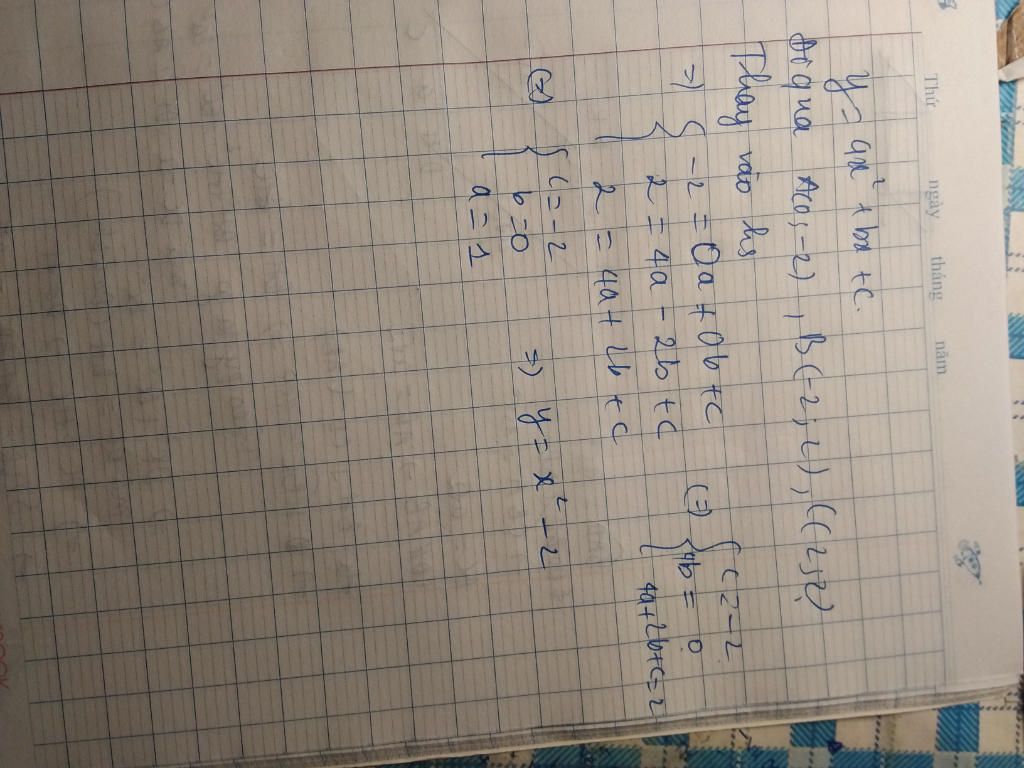 Thứ ngày tháng năm
y = ax² + bx + c.
Đi qua A(0,-2), B(-2,2), C(2,2)
Thay vào hs
=> { -2 = 0a + 0b + c
2 = 4a - 2b + c
2 = 4a + 2b + c
(=) { c = -2
4b = 0
4a+2b+c=2
(=) { c = -2
b = 0
a = 1
=> y = x² - 2